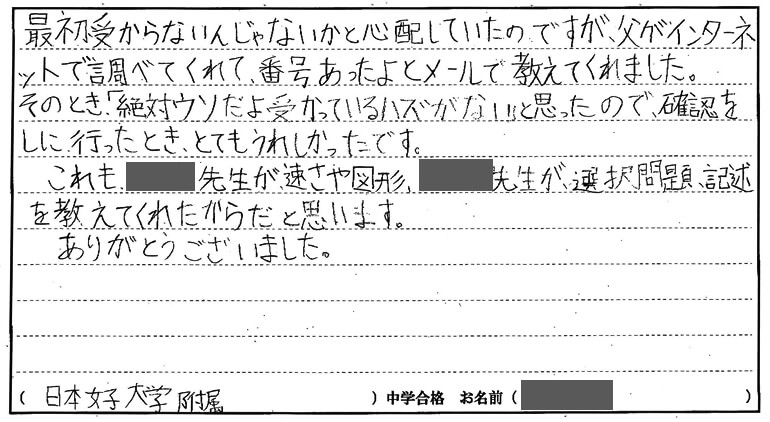 最初受からないんじゃないかと心配していたのですが、父がインターネ
ットで調べてくれて、番号あったよとメールで教えてくれました。
そのとき、「絶対ウソだよ受かっているハズがない」と思ったので、確認を
しに行ったとき、とてもうれしかったです。
これも、先生が速さや図形、先生が、選択問題、記述
を教えてくれたからだと思います。
ありがとうございました。
(日本女子大学附属)中学合格 お名前()